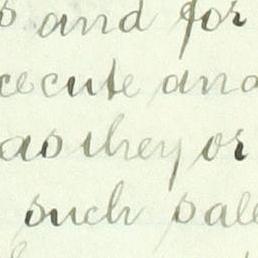 s and for
xecute and
as they or
such sale